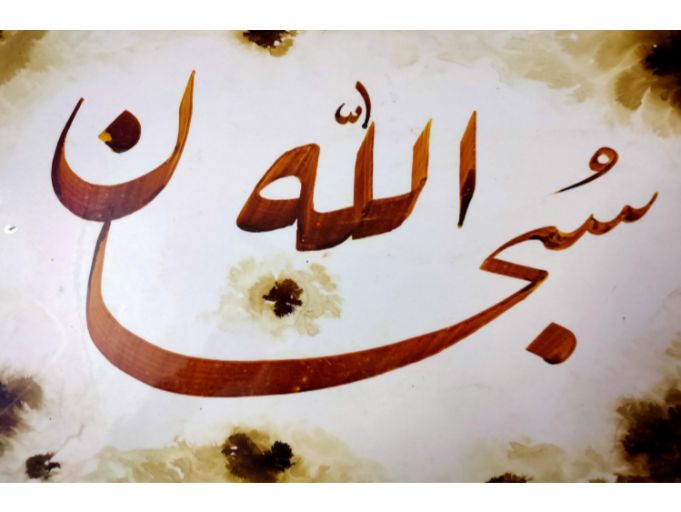 سُبحان اللّٰه